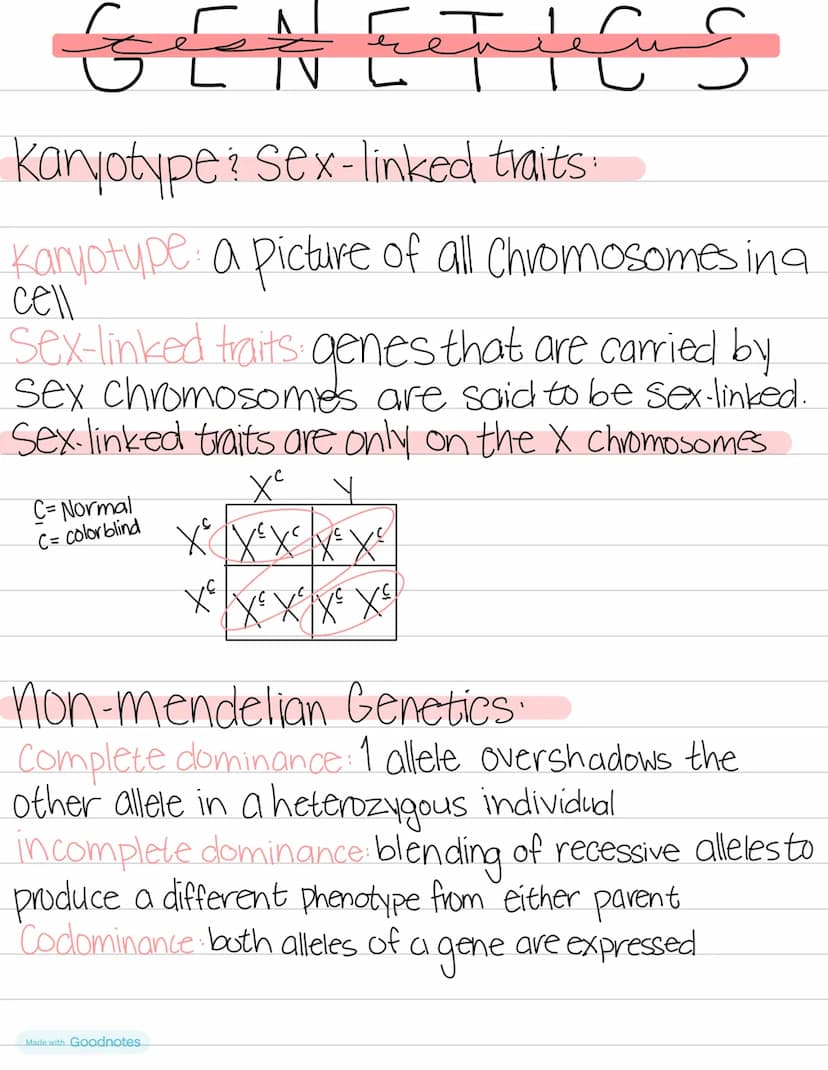 GENETICS
test review
Karyotype & sex-linked traits:
Karyotype: a picture of all chromosomes in a
cell
Sex-linked traits: genes that are carried by
sex chromosomes are said to be sex-linked.
Sex-linked traits are only on the X chromosomes
Xᶜ Y
C= Normal
c= colorblind
Xᶜ XᶜXᶜ XᶜXᶜ
Xᶜ XᶜXᶜ XᶜXᶜ
Non-mendelian Genetics:
Complete dominance: 1 allele overshadows the
other allele in a heterozygous individual
incomplete dominance: blending of recessive alleles to
produce a different phenotype from either parent
Codominance: both alleles of a gene are expressed
Made with Goodnotes